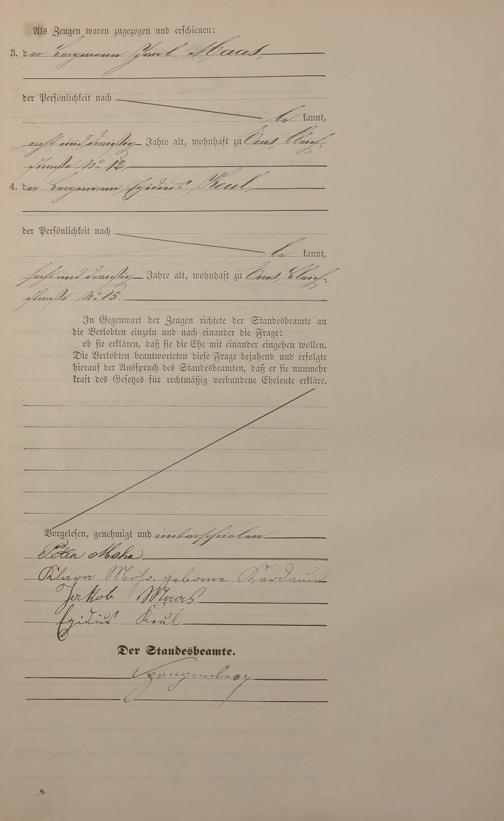 Als Zeugen waren zugezogen und erschienen:
3. der Bergmann Maas
der Persönlichkeit nach
be kannt,
und dreißig Jahre alt, wohnhaft zu Ems,
No 12
4. der Bergmann Egidius Keul
der Persönlichkeit nach
be kannt,
sechs und dreißig Jahre alt, wohnhaft zu Ems,
No 15
In Gegenwart der Zeugen richtete der Standesbeamte an
die Verlobten einzeln und nach einander die Frage:
ob sie erklären, daß sie die Ehe mit einander eingehen wollen.
Die Verlobten beantworteten diese Frage bejahend und erfolgte
hierauf der Ausspruch des Standesbeamten, daß er sie nunmehr
kraft des Gesetzes für rechtmäßig verbundene Eheleute erkläre.
Vorgelesen, genehmigt und unterschrieben
Klara geborene
Jakob Maas
Egidius Keul
Der Standesbeamte.